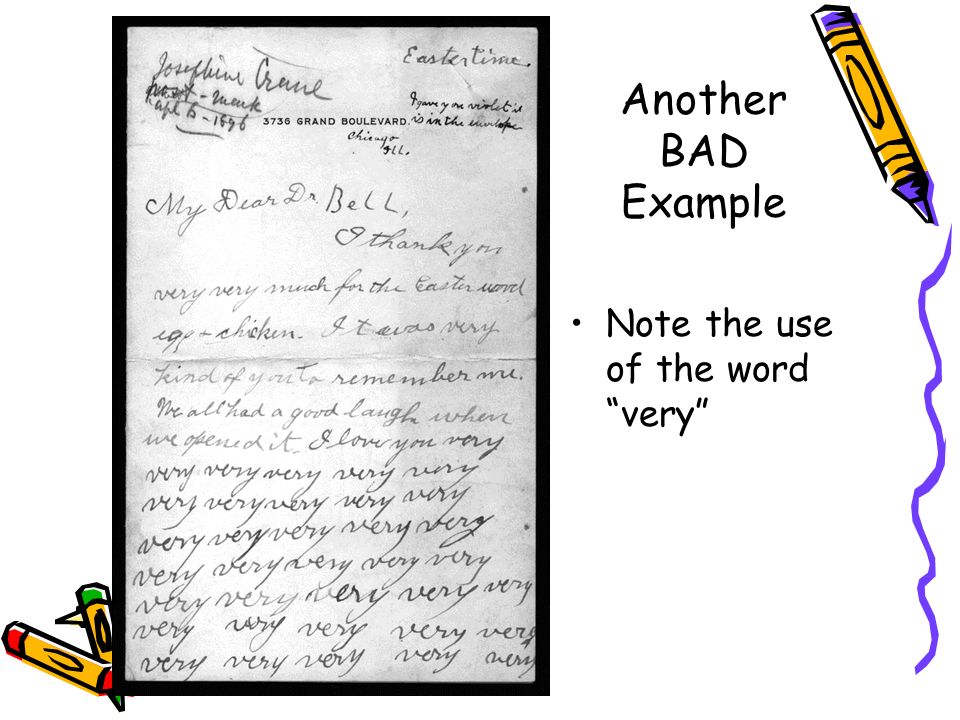 Josephine Crane
post-mark
Apl 5-1896
Eastertime.
I gave you violet it
is in the envelope
3736 GRAND BOULEVARD.
Chicago
Ill.
My Dear Dr. Bell,
I thank you
very very much for the Easter wood
egg + chicken. It was very
kind of you to remember me.
We all had a good laugh when
we opened it. I love you very
very very very very very
very very very very very
very very very very very
very very very very very
very very very very very
very very very very very
very very very very very
Another
BAD
Example
• Note the use
of the word
“very”